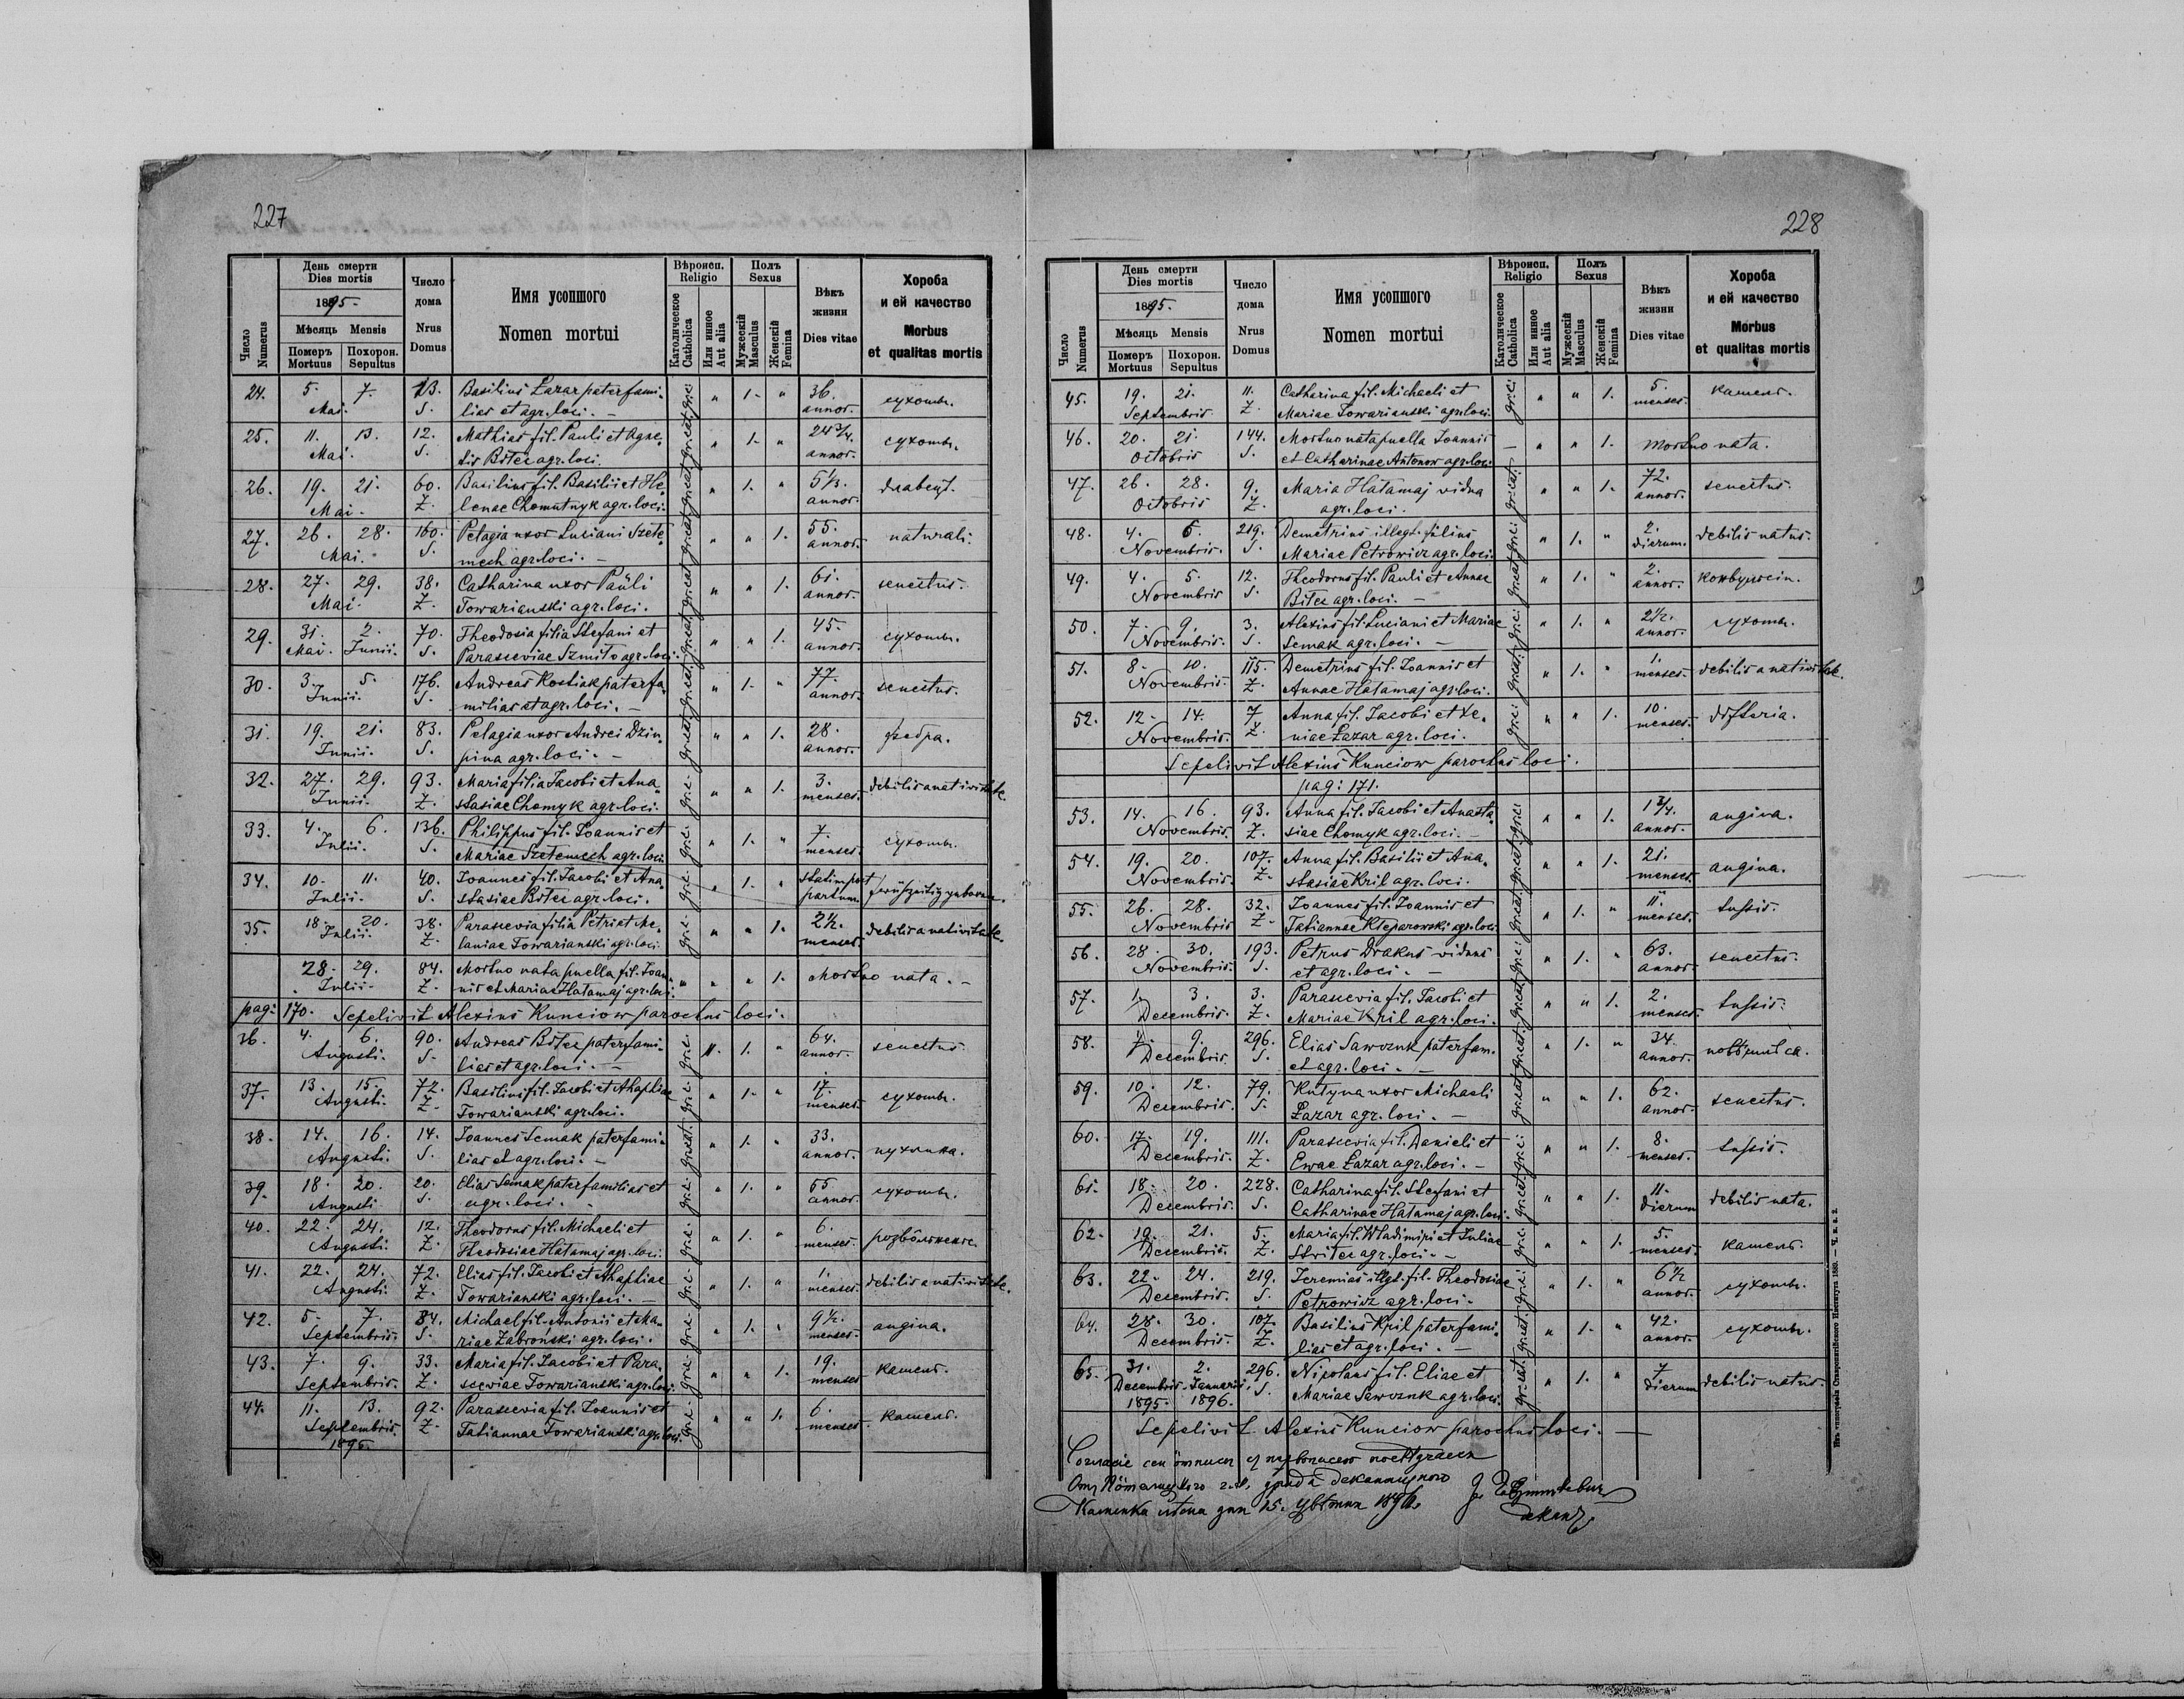 227
День смерти
Dies mortis
1895.
Мѣсяць Mensis
Померъ Похорон.
Mortuus Sepultus
Число
Numerus
Число
дома
Nrus
Domus
Имя усопшого
Nomen mortui
Вѣроисп.
Religio
Католическое
Catholica
Или инное
Aut alia
Полъ
Sexus
Мужескій
Masculus
Женскій
Femina
Вѣкъ
жизни
Dies vitae
Хороба
и ей качество
Morbus
et qualitas mortis
24. 5. 7. 13. Basilius Łazar paterfami- gr. cat. " 1. " 36.
Mai. S. lias et agr. loci. – annor. сухоты.
25. 11. 13. 12. Mathias fil. Pauli et Agne- gr. cat. " 1. " 24 3/4.
Mai. S. tis Bitec agr. loci. annor. сухоты.
26. 19. 21. 60. Basilius fil. Basilii et He- gr. cat. " 1. " 5 1/3.
Mai. Z. lenae Chomutnyk agr. loci. annor.
27. 26. 28. 160. Pelagia uxor Luciani Szete- gr. cat. " " 1. 55.
Mai. S. mech agr. loci. – annor. naturali.
28. 27. 29. 38. Catharina uxor Pauli gr. cat. " " 1. 61.
Mai. Z. Towarianski agr. loci. annor. senectus.
29. 31. 2. 70. Theodosia filia Stefani et gr. cat. " " 1. 45.
Mai. Junii. S. Parasceviae Szmiło agr. loci. annor. сухоты.
30. 3. 5. 176. Andreas Kostiak paterfa- gr. cat. " 1. " 77.
Junii. S. milias et agr. loci. – annor. senectus.
31. 19. 21. 83. Pelagia uxor Andrei Dziu- gr. cat. " " 1. 28.
Junii. S. pina agr. loci. – annor. фебра.
32. 27. 29. 93. Maria filia Jacobi et Ana- gr. c. " " 1. 3.
Junii. Z. stasiae Chomyk agr. loci. menses. debilis a nativitate.
33. 4. 6. 136. Philippus fil. Joannis et gr. c. " 1. " 7.
Julii. S. Mariae Szetemech agr. loci. menses. сухоты.
34. 10. 11. 40. Joannes fil. Jacobi et Ana- gr. c. " 1. " statim post
Julii. S. stasiae Bitec agr. loci. partum.
35. 18. 20. 38. Parascevia filia Petri et Me- gr. c. " " 1. 2 1/2.
Julii. Z. laniae Towarianski agr. loci. menses. debilis a nativitate.
28. 29. 84. Mortuo nata puella fil. Joan- " " " 1. Mortuo nata. –
Julii. Z. nis et Mariae Hatamaj agr. loci.
pag: 170. Sepelivit Alexius Kunciow parochus loci.
36. 4. 6. 90. Andreas Bitec paterfami- gr. c. " 1. " 64.
Augusti. S. lias et agr. loci. – annor. senectus.
37. 13. 15. 72. Basilius fil. Jacobi et Ahaphiae gr. c. " 1. " 17.
Augusti. Z. Towarianski agr. loci. menses. сухоты.
38. 14. 16. 14. Joannes Semak paterfami- gr. cat. " 1. " 33.
Augusti. S. lias et agr. loci. – annor. пухлина.
39. 18. 20. 20. Elias Semak paterfamilias et gr. c. " 1. " 55
Augusti. S. agr. loci. annor. сухоты.
40. 22. 24. 12. Theodorus fil. Michaeli et gr. c. " 1. " 6.
Augusti. Z. Theodosiae Hatamaj agr. loci. menses.
41. 22. 24. 72. Elias fil. Jacobi et Ahaphiae gr. c. " 1. " 1.
Augusti. Z. Towarianski agr. loci. – menses. debilis a nativitate.
42. 5. 7. 84. Michael fil. Antonii et Ma- gr. c. " 1. " 9 1/2.
Septembris. S. riae Zabronski agr. loci. menses. angina.
43. 7. 9. 33. Maria fil. Jacobi et Para- gr. c. " " 1. 19.
Septembris. Z. sceviae Towarianski agr. loci. menses. камень.
44. 11. 13. 92. Parascevia fil. Joannis et gr. c. " " 1. 6.
Septembris. Z. Tatiannae Towarianski agr. loci. menses. камень.
1895.
228
День смерти
Dies mortis
1895.
Мѣсяць Mensis
Померъ Похорон.
Mortuus Sepultus
Число
Numerus
Число
дома
Nrus
Domus
Имя усопшого
Nomen mortui
Вѣроисп.
Religio
Католическое
Catholica
Или инное
Aut alia
Полъ
Sexus
Мужескій
Masculus
Женскій
Femina
Вѣкъ
жизни
Dies vitae
Хороба
и ей качество
Morbus
et qualitas mortis
45. 19. 21. 11. Catharina fil. Michaeli et gr. c. " " 1. 5.
Septembris. Z. Mariae Towarianski agr. loci. menses. камень.
46. 20. 21. 144. Mortuo nata puella Joannis – " " 1. mortuo nata.
Octobris S. et Catharinae Antonow agr. loci.
47. 26. 28. 9. Maria Hatamaj vidua gr. cat. " " 1. 72.
Octobris Z. agr. loci. annor. senectus.
48. 4. 6. 219. Demetrius illegt. filius gr. c. " 1. " 2.
Novembris. S. Mariae Petrowicz agr. loci. dierum. debilis natus.
49. 4. 5. 12. Theodorus fil. Pauli et Annae gr. cat. " 1. " 2.
Novembris S. Bitec agr. loci. – annor. конвульсіи.
50. 7. 9. 3. Alexius fil. Luciani et Mariae gr. c. " 1. " 2 1/2.
Novembris. S. Semak agr. loci. – annor. сухоты.
51. 8. 10. 115. Demetrius fil. Joannis et gr. cat. " 1. " 1.
Novembris. Z. Annae Hatamaj agr. loci. menses. debilis a nativitate.
52. 12. 14. 7 Anna fil. Jacobi et Xe- gr. c. " " 1. 10.
Novembris. Z. niae Łazar agr. loci. menses. difteria.
Sepelivit Alexius Kunciow parochus loci.
pag: 171.
53. 14. 16. 93. Anna fil. Jacobi et Anasta- gr. c. " " 1. 1 3/4.
Novembris. Z. siae Chomyk agr. loci. – annor. angina.
54. 19. 20. 107. Anna fil. Basilii et Ana- gr. cat. " " 1. 21.
Novembris. Z. stasiae Kril agr. loci. menses. angina.
55. 26. 28. 32. Joannes fil. Joannis et gr. cat. " 1. " 11.
Novembris Z. Tatiannae Kleparowski agr. loci. menses. tussis.
56. 28. 30. 193. Petrus Drakus viduus gr. c. " 1. " 63.
Novembris. S. et agr. loci. – annor. senectus.
57. 1. 3. 3. Parascevia fil. Jacobi et gr. cat. " " 1. 2.
Decembris. Z. Mariae Kril agr. loci. menses. tussis.
58. 7. 9. 296. Elias Sawczuk paterfam. gr. cat. " 1. " 34.
Decembris S. et agr. loci. – annor.
59. 10. 12. 79. Kulyna uxor Michaeli gr. cat. " " 1. 62.
Decembris. S. Łazar agr. loci. – annor. senectus.
60. 17. 19. 111. Parascevia fil. Danieli et gr. c. " " 1. 8.
Decembris. Z. Ewae Łazar agr. loci. – menses. tussis.
61. 18. 20. 228. Catharina fil. Stefani et gr. cat. " " 1. 11.
Decembris. S. Catharinae Hatamaj agr. loci. dierum debilis nata.
62. 19. 21. 5. Maria fil. Wladimiri et Juliae gr. c. " " 1. 5.
Decembris. Z. Stritec agr. loci. – menses. камень.
63. 22. 24. 219. Jeremias illgt. fil. Theodosiae gr. c. " 1. " 6 1/2
Decembris. S. Petrowicz agr. loci. annor. сухоты.
64. 28. 30. 107. Basilius Kril paterfami- gr. cat. " 1. " 42.
Decembris. Z. lias et agr. loci. – annor. сухоты.
65. 31. 2. 296. Nikolaus fil. Eliae et gr. cat. " 1. " 7
Decembris. Januarii. S. Mariae Sawczuk agr. loci. dierum debilis natus.
1895. 1896.
Sepelivit Alexius Kunciow parochus loci. –
Каменка дня 15. 1896.
деканъ.
Изъ типографіи Ставропигійского Института 1889. — Ч. в. а. 2.